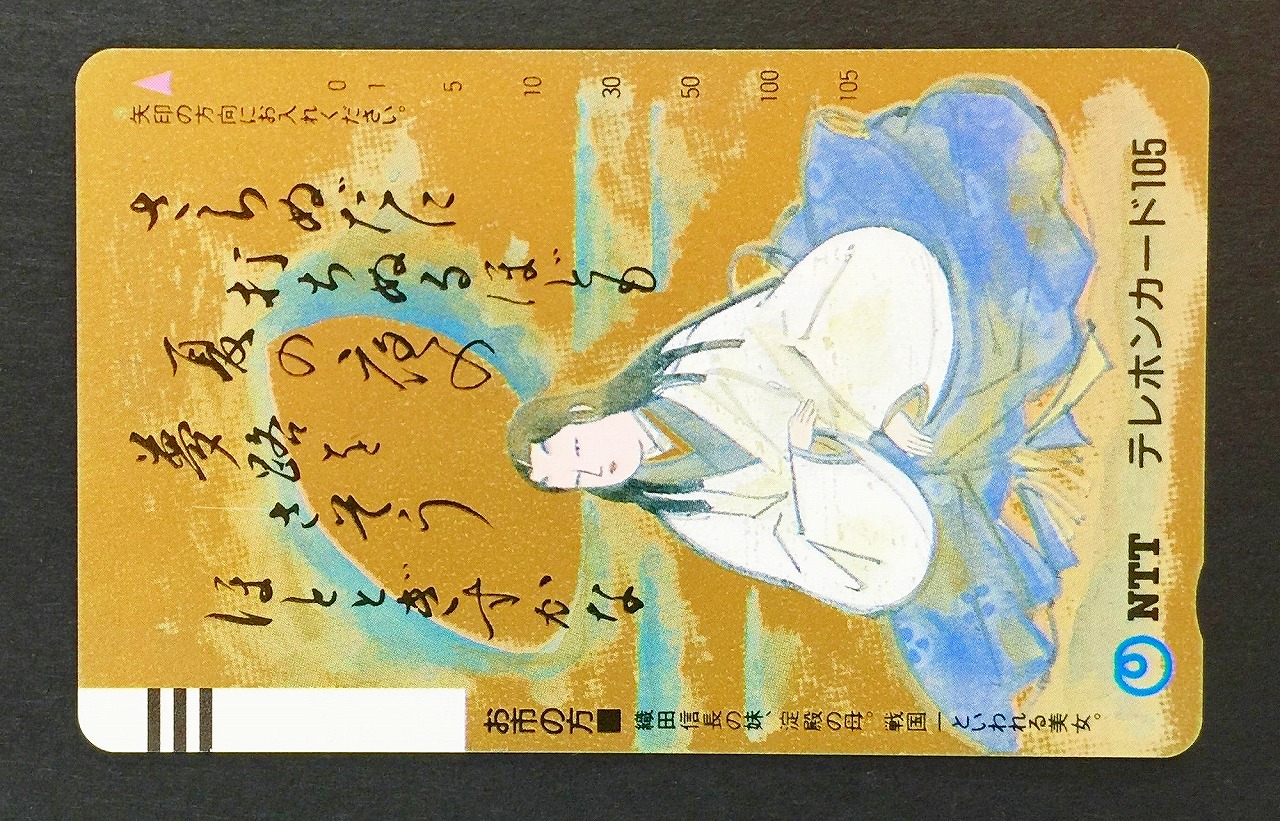 矢印の方向にお入れください。
0 1 5 10 30 50 100 105
さらぬだに
打ちぬるほども
夏の夜の
夢路を
さそう
ほととぎすかな
お市の方■
織田信長の妹、淀殿の母。戦国一といわれる美女。
NTT テレホンカード105